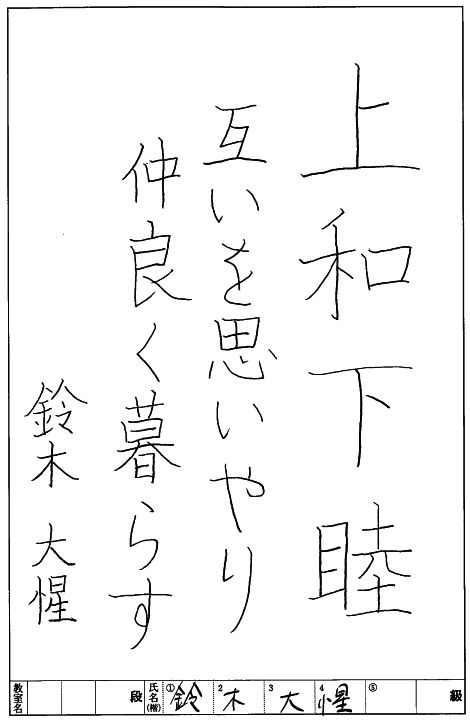 上和下睦
互いを思いやり
仲良く暮らす
鈴木 大惺
教室名 段 氏名(楷) ①鈴 2木 3大 4惺 ⑤ 級